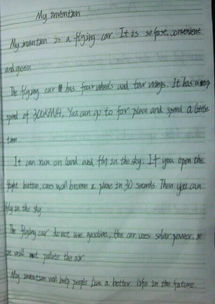 My invention
My invention is a flying car. It is so fast, convenient
and green.
The flying car has four wheels and four wings. It has a
speed of 300KM/H, You can go to far place and spend a little
time.
It can run on land and fly in the sky. If you open the
button, cars will become a plane in 30 seconds. Then you can
fly in the sky.
The flying car do not use gasoline, the car uses solar power, so
it will not pollute the air.
My invention will help people live a better life in the future.